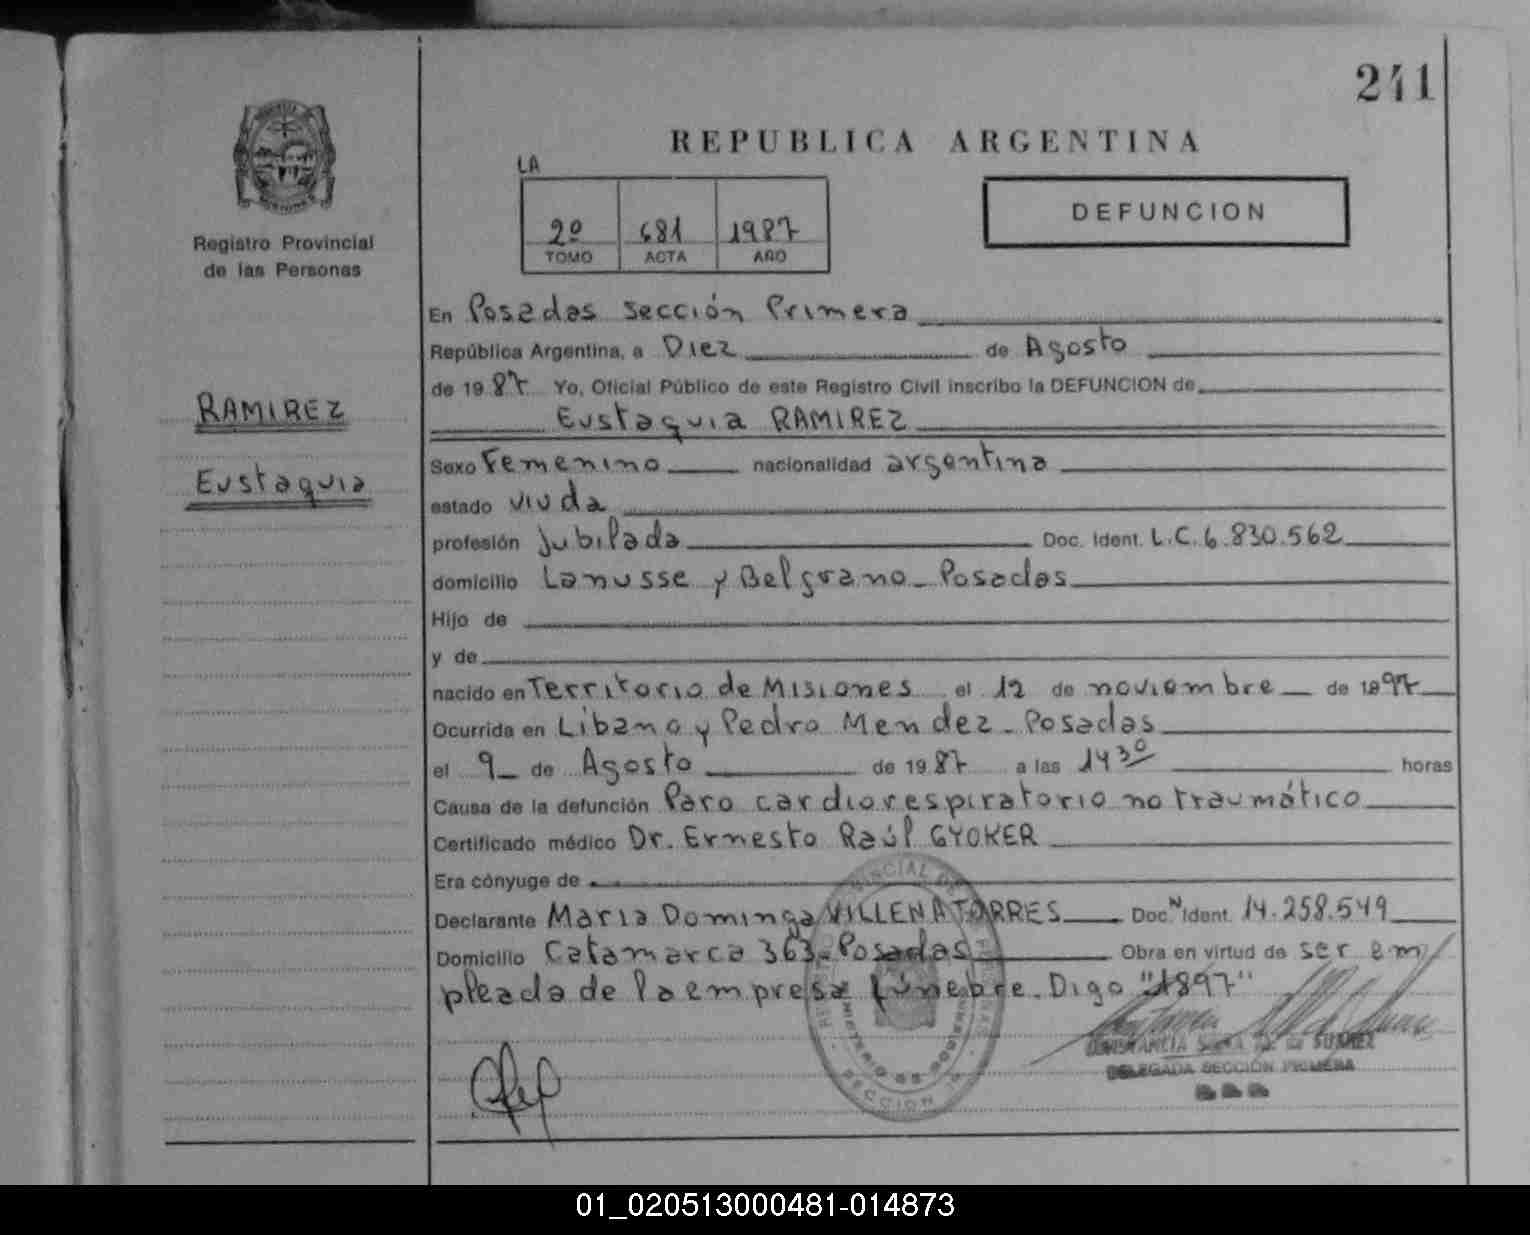 241
REPUBLICA ARGENTINA
LA
2º 681 1987
TOMO ACTA AÑO
DEFUNCION
Registro Provincial
de las Personas
RAMIREZ
Eustaquia
En Posadas sección Primera
República Argentina, a Diez de Agosto
de 1987 Yo, Oficial Público de este Registro Civil inscribo la DEFUNCION de
Eustaquia RAMIREZ
Sexo Femenino nacionalidad argentina
estado viuda
profesión jubilada Doc. Ident. L.C. 6.830.562
domicilio Lanusse y Belgrano - Posadas
Hijo de
y de
nacido en Territorio de Misiones el 12 de noviembre de 1997
Ocurrida en Líbano y Pedro Mendez - Posadas
el 9 de Agosto de 1987 a las 14 30 horas
Causa de la defunción Paro cardiorespiratorio no traumático
Certificado médico Dr. Ernesto Raúl GYOKER
Era cónyuge de
Declarante Maria Dominga VILLENA TORRES Doc. N Ident. 14.258.549
Domicilio Catamarca 363 - Posadas Obra en virtud de ser em
pleada de la empresa fúnebre. Digo "1897"
SUAREZ
DELEGADA SECCION PRIMERA
SECCION
01_020513000481-014873